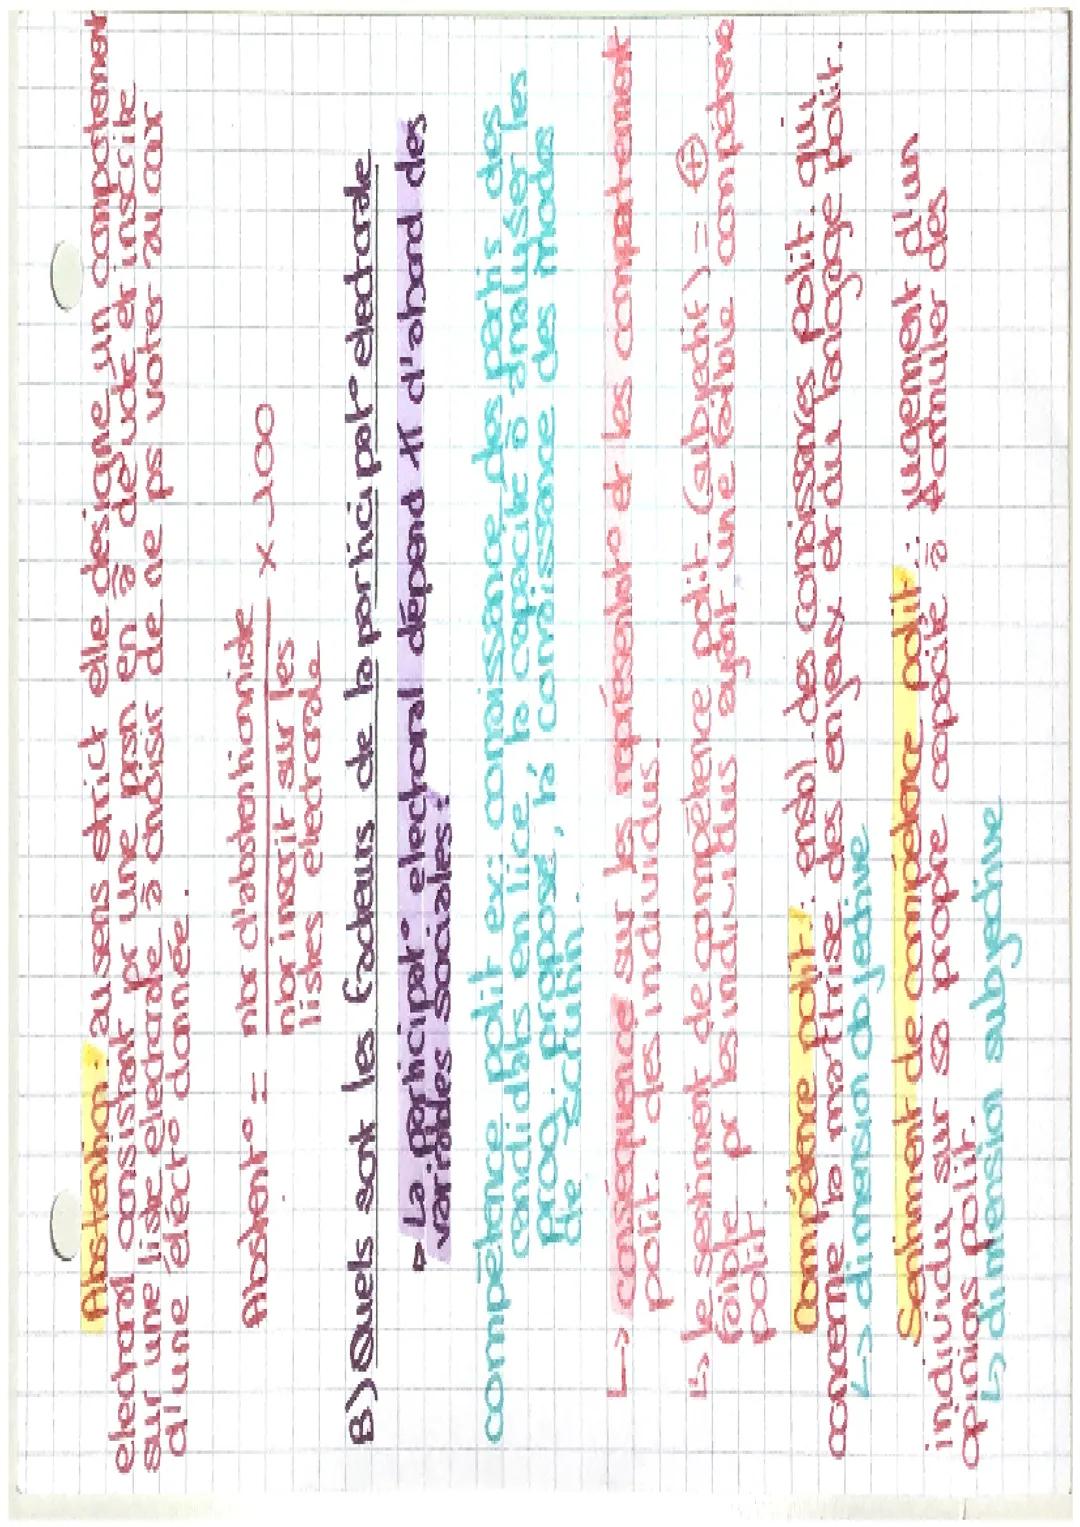 Abstention : au sens strict elle désigne un comportement
electoral consistant pr une prsn en â d'âge de et inscrite
sur une liste electorale à choisir de ne ps votér au car
d'une élect° donnée.
Abstent° = nbr d'abstentionniste x 100
nbr inscrit sur les
listes electorale
B) Quels sont les facteurs de la participat° electorale
→ La participat° electoral dépend tt d'abord des
variables sociales :
compétence polit ex: conaissance des partis des
candidats en lice, la capacité à analyser les
prog proposé, la connaissance des mode
de scrutin.
↳ conséquence sur les représentat° et les comportement
polit. des individus.
↳ le sentiment de compétence polit. (subjectif) = +
faible pr les individus ayant une faible compétence
polit
Compétence polit : ensbl. des conaissances polit. qui
concerne la maîtrise des enjeux et du langage polit.
↳ dimension objective
Sentiment de compétence polit : Jugement d'un
individu sur sa propre capacité à formuler des
opinions polit.
↳ dimension subjective